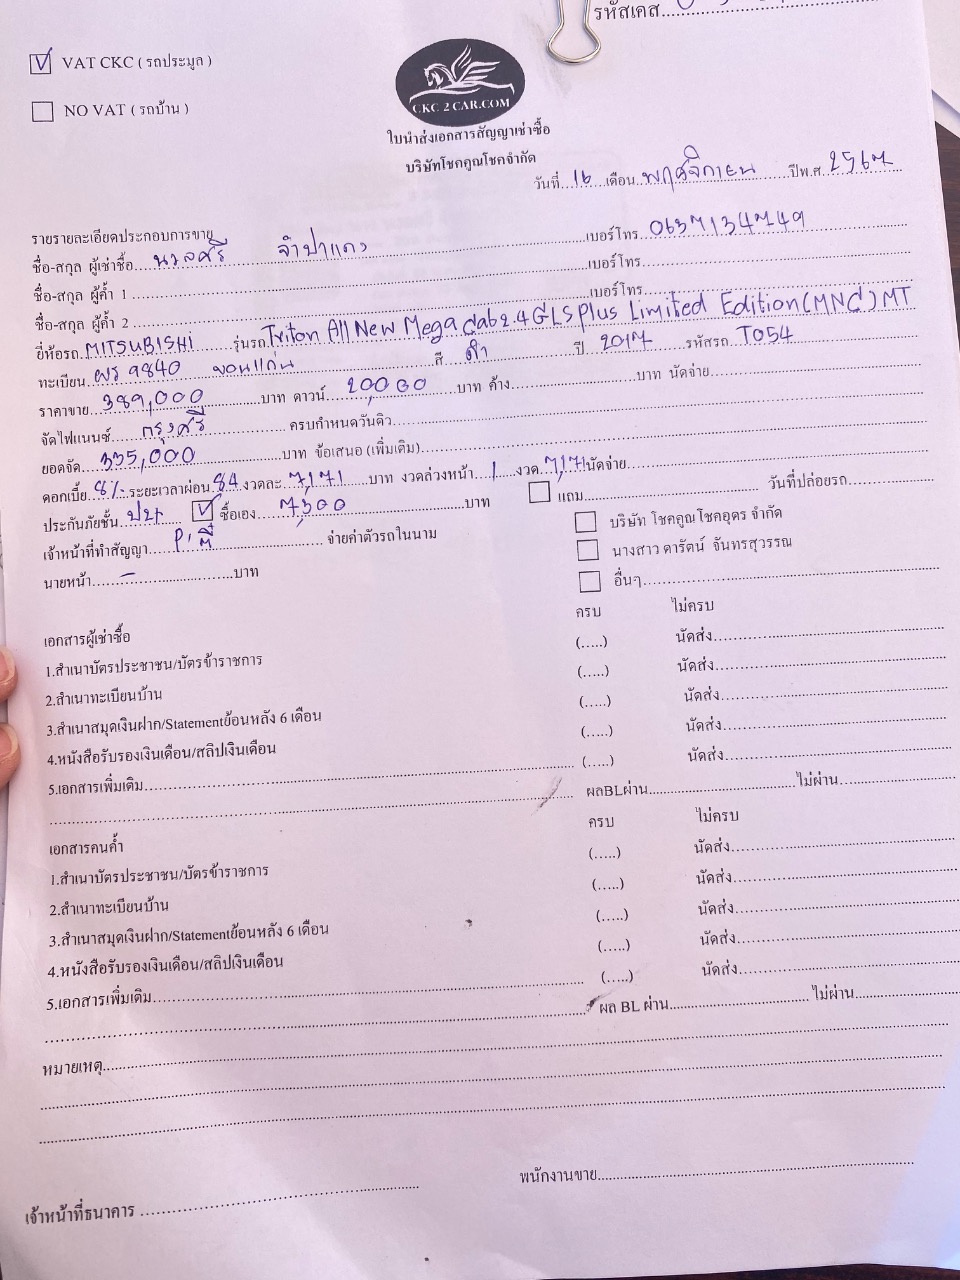 รหัสเคส
VAT CKC ( รถประมูล )
NO VAT ( รถบ้าน )
CKC 2 CAR.COM
ใบนำส่งเอกสารสัญญาเช่าซื้อ
บริษัทโชคคูณโชคจำกัด
วันที่ 16 เดือน พฤศจิกายน ปีพ.ศ. 2567
รายรายละเอียดประกอบการขาย
ชื่อ-สกุล ผู้เช่าซื้อ นวลศรี จำปาแดง เบอร์โทร. 0637134749
ชื่อ-สกุล ผู้ค้ำ 1 เบอร์โทร
ชื่อ-สกุล ผู้ค้ำ 2 เบอร์โทร
ยี่ห้อรถ MITSUBISHI รุ่นรถ Triton All New Mega Cab 2.4 GLS Plus Limited Edition (MNC) MT
ทะเบียน ผร 9840 ขอนแก่น สี ดำ ปี 2017 รหัสรถ T054
ราคาขาย 389,000 บาท ดาวน์ 20,000 บาท ค้าง บาท นัดจ่าย
จัดไฟแนนซ์ กรุงศรี ครบกำหนดวันติว
ยอดจัด 335,000 บาท ข้อเสนอ (เพิ่มเติม)
ดอกเบี้ย 8% ระยะเวลาผ่อน 84 งวดละ 7,171 บาท งวดล่วงหน้า 1 งวด 7,171 นัดจ่าย
ประกันภัยชั้น ซื้อเอง 7,300 บาท แถม วันที่ปล่อยรถ
เจ้าหน้าที่ทำสัญญา P'ตี๋ จ่ายค่าตัวรถในนาม
บริษัท โชคคูณโชคอุดร จำกัด
นางสาว ดารัตน์ จันทรสุวรรณ
นายหน้า - บาท
อื่นๆ
เอกสารผู้เช่าซื้อ ครบ ไม่ครบ
1.สำเนาบัตรประชาชน/บัตรข้าราชการ (.....) นัดส่ง
2.สำเนาทะเบียนบ้าน (.....) นัดส่ง
3.สำเนาสมุดเงินฝาก/Statementย้อนหลัง 6 เดือน (.....) นัดส่ง
4.หนังสือรับรองเงินเดือน/สลิปเงินเดือน (.....) นัดส่ง
5.เอกสารเพิ่มเติม (.....) นัดส่ง
ผลBLผ่าน ไม่ผ่าน
เอกสารคนค้ำ ครบ ไม่ครบ
1.สำเนาบัตรประชาชน/บัตรข้าราชการ (.....) นัดส่ง
2.สำเนาทะเบียนบ้าน (.....) นัดส่ง
3.สำเนาสมุดเงินฝาก/Statementย้อนหลัง 6 เดือน (.....) นัดส่ง
4.หนังสือรับรองเงินเดือน/สลิปเงินเดือน (.....) นัดส่ง
5.เอกสารเพิ่มเติม (.....) นัดส่ง
ผล BL ผ่าน ไม่ผ่าน
หมายเหตุ
พนักงานขาย
เจ้าหน้าที่ธนาคาร